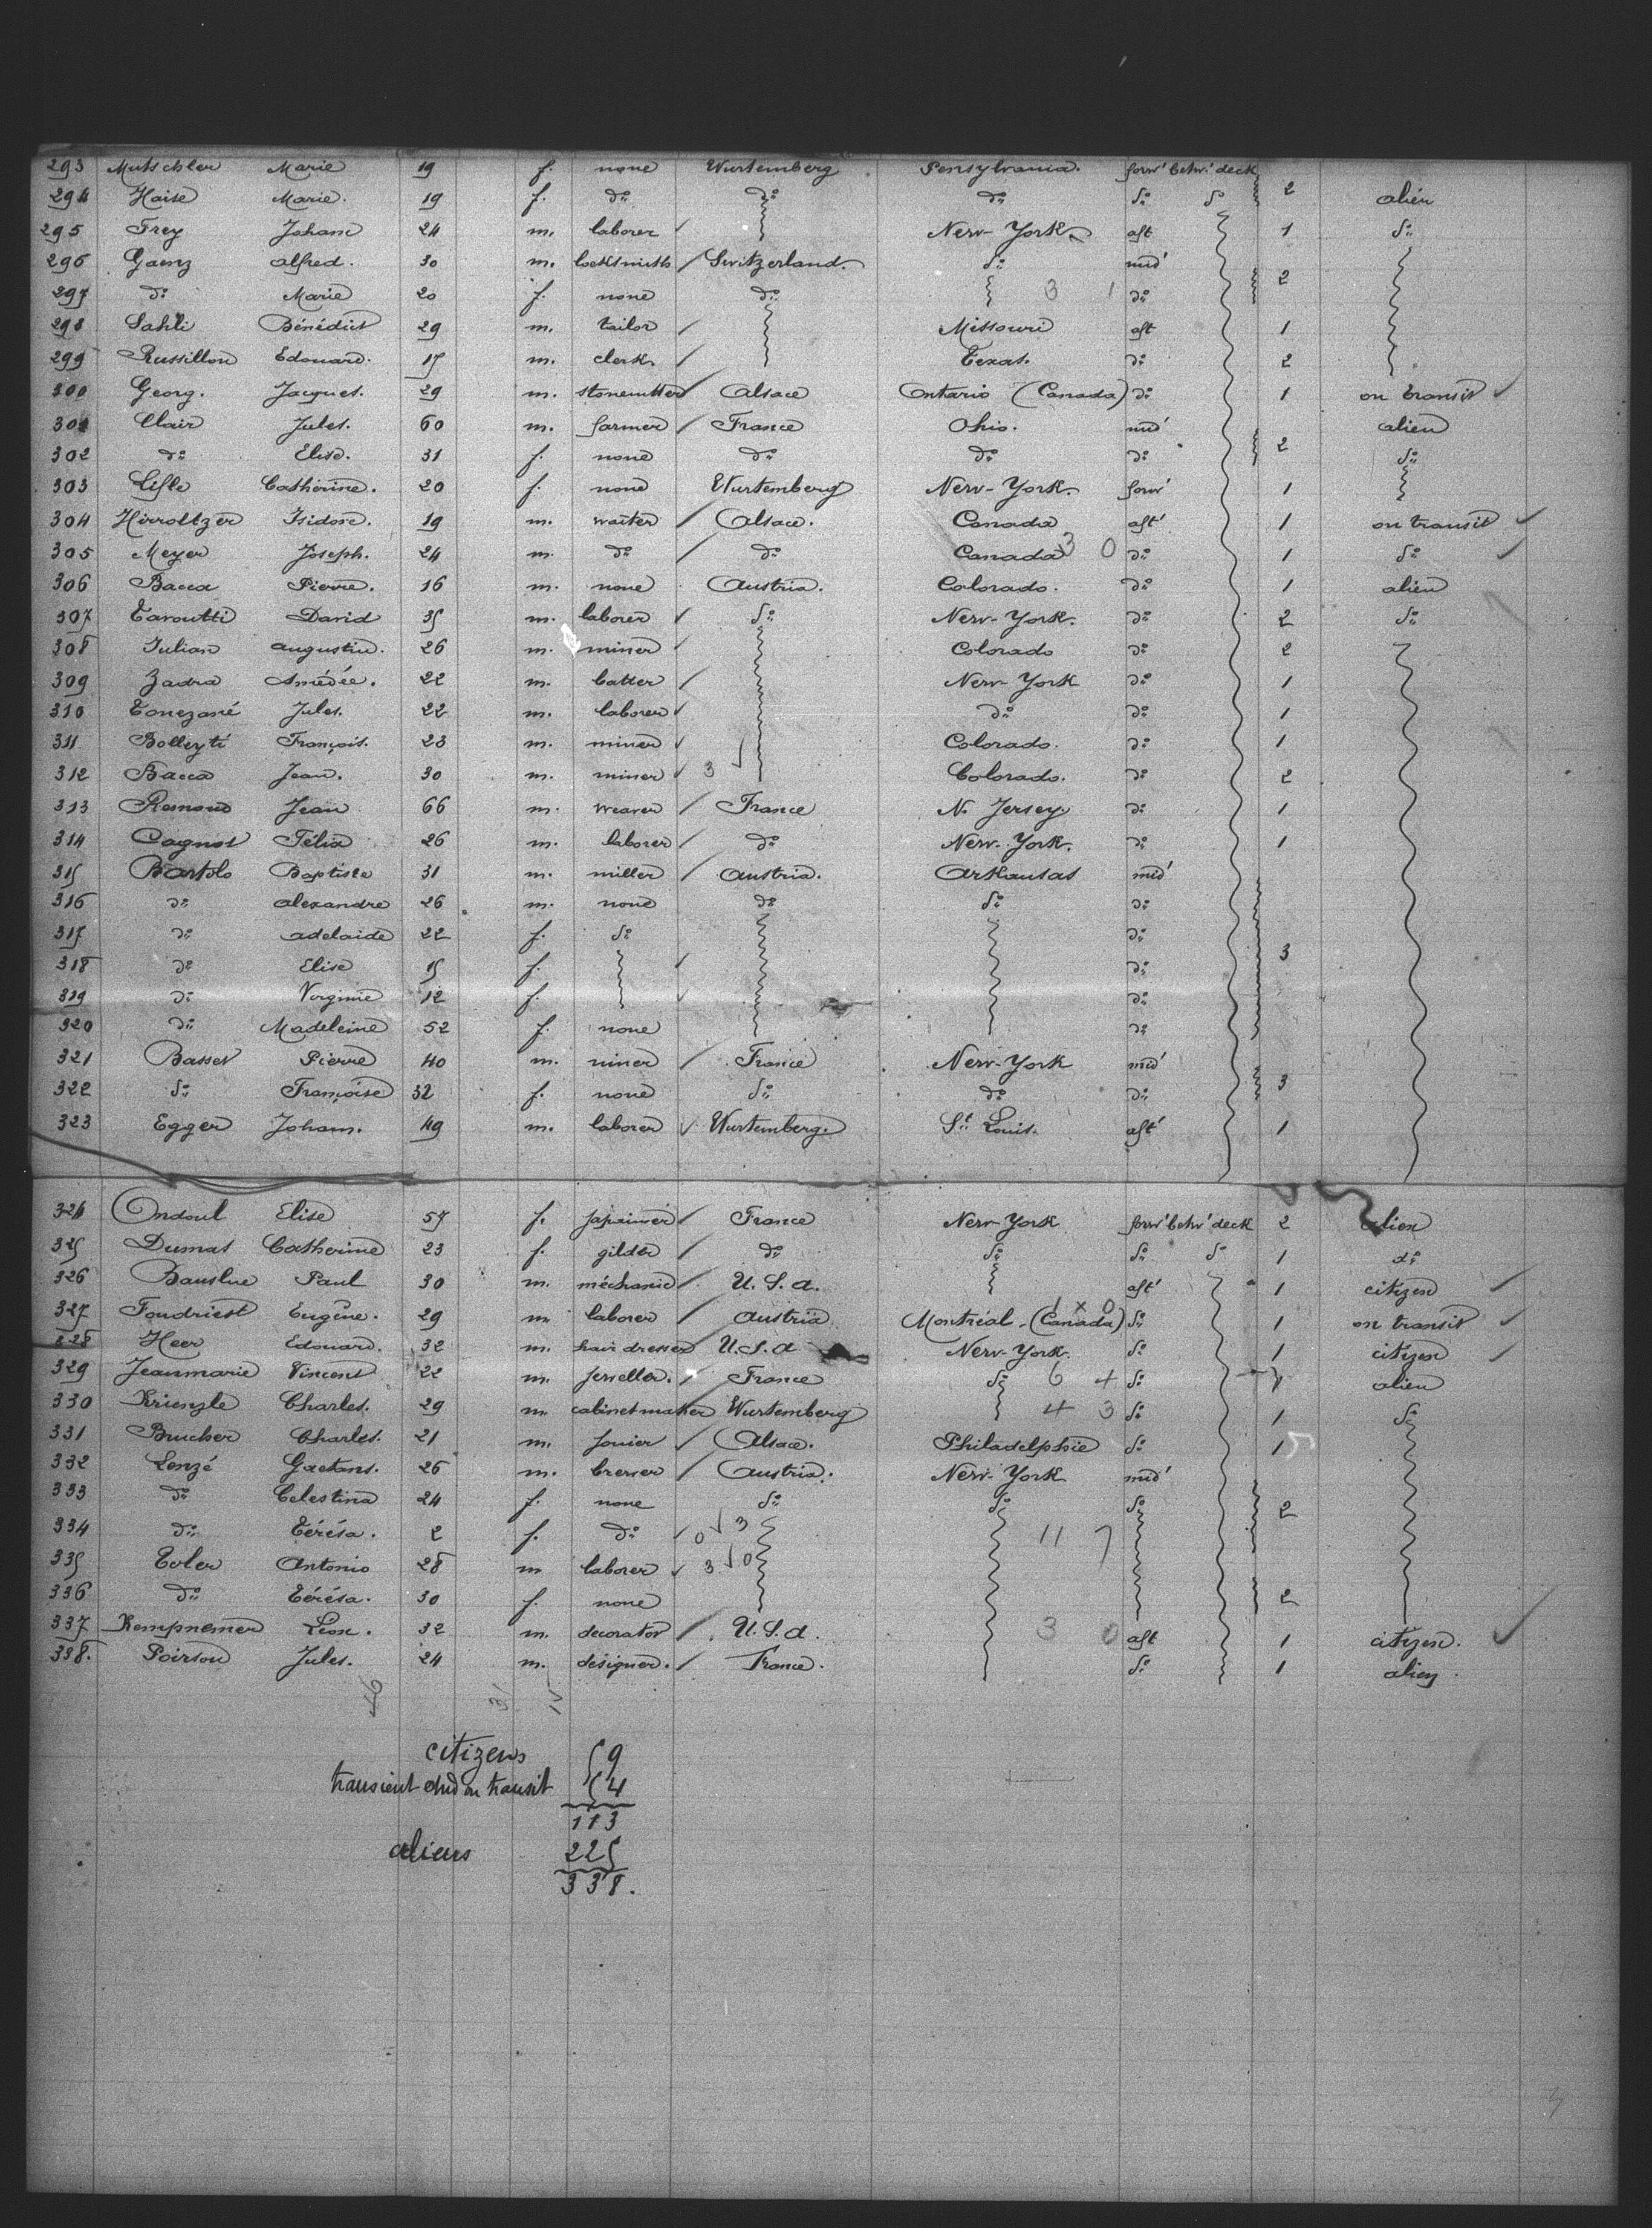 293 Mutschler Marie 19 f. none Wurtemberg Pensylvania. forw' betw' deck
294 Haise Marie. 19 f. do do do do do 2 alien
295 Frey Johann 24 m. laborer New-York. aft 1 do
296 Gaenz alfred. 30 m. locksmith Switzerland. do mid'
297 do Marie 20 f. none do 3 1 do 2
298 Sahli Bénédict 29 m. tailor Missouri aft 1
299 Russillon Edouard. 15 m. clerk Texas. do 2
300 Georg. Jacques. 29 m. stonecutter Alsace Ontario (Canada) do 1 on transit
301 Clair Jules. 60 m. farmer France Ohio. mid' alien
302 do Elise. 31 f. none do do do 2 do
303 Cathérine. 20 f. none Wurtemberg New-York. forw' 1
304 Hirroltzer Isidore. 19 m. waiter Alsace. Canada aft' 1 on transit
305 Meyer Joseph. 24 m. do do Canada 3 0 do 1 do
306 Bacca Pierre. 16 m. none Austria. Colorado. do 1 alien
307 Tavoutti David 35 m. laborer do New-York. do 2 do
308 Julian augustin. 26 m. miner Colorado do 2
309 Zadra Amédée. 22 m. New-York do 1
310 Tonezané Jules. 22 m. laborer do do 1
311 François. 23 m. miner Colorado. do 1
312 Bacca Jean. 30 m. miner 3 Colorado. do 2
313 Remond Jean 66 m. weaver France N. Jersey do 1
314 Cagnot Félix 26 m. laborer do New-York. do 1
315 Bartolo Baptiste 31 m. miller Austria. Arkansas mid'
316 do alexandre 26 m. none do do do
317 do adelaide 22 f. do do
318 do Elise 15 f. do 3
319 do Virginie 12 f. do
320 do Madeleine 52 f. none do
321 Basset Pierre 40 m. miner France New-York mid'
322 do Françoise 32 f. none do do do 3
323 Egger Johann. 49 m. laborer Wurtemberg. St. Louis. aft' 1
324 Ondoul Elise 57 f. France New-York forw' betw' deck 2 alien
325 Dumas Catherine 23 f. gilder do do do do 1 do
326 Paul 30 m. méchanic U.S.a. aft' 1 citizen
327 Foudriest Eugène. 29 m laborer Austria Montréal (Canada) 1 x 0 do 1 on transit
328 Heer Edouard. 32 m. hair dresser U.S.a New-York. do 1 citizen
329 Jeanmarie Vincent 22 m. jeweller. France do 6 4 do 1 alien
330 Krienzle Charles. 29 m. cabinetmaker Wurtemberg 4 3 do 1 do
331 Brucher Charles. 21 m. joiner Alsace. Philadelphie do 1
332 Lenzé Gaetans. 26 m. brewer Austria. New-York mid'
333 do Celestina 24 f. none do do do 2
334 do Térésa. 2 f. do 0 3 11 7
335 Toler Antonio 28 m laborer 3 0
336 do Térésa. 30 f. none 2
337 Kempnemer Léon. 32 m. decorator U.S.a. 3 0 aft 1 citizen.
338. Poirson Jules. 24 m. désigner. France. do 1 alien.
46 31 15
citizens 59
transient and on transit 54
113
aliens 225
338.